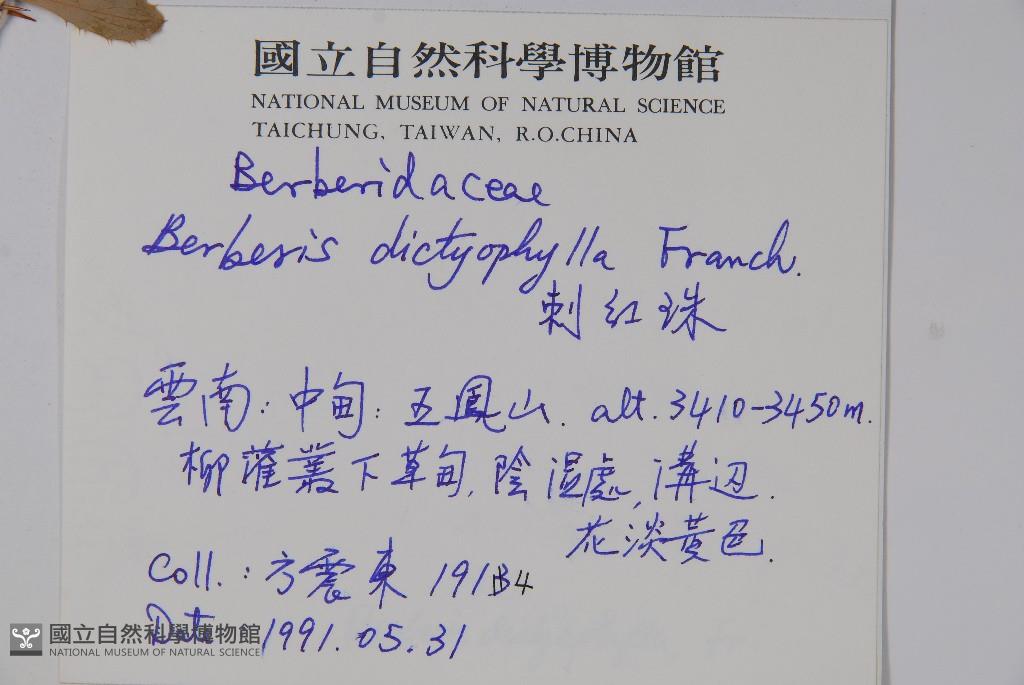 國立自然科學博物館
NATIONAL MUSEUM OF NATURAL SCIENCE
TAICHUNG, TAIWAN, R.O.CHINA
Berberidaceae
Berberis dictyophylla Franch.
刺紅珠
雲南：中甸：五鳳山. alt. 3410-3450m.
柳灌叢下草甸, 陰濕處, 溝辺.
花淡黃色.
Coll.：方震東
Date 1991.05.31
國立自然科學博物館
NATIONAL MUSEUM OF NATURAL SCIENCE